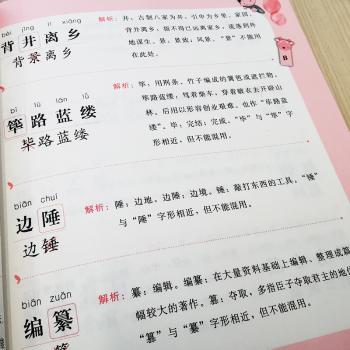 bèi jǐng lí xiāng
背井离乡
背景离乡
解析：井，古制八家为井，引申为乡里、家园。
背井离乡，指不得已远离家乡，流落到外
地谋生。景，景致，风景。“景”不能用
在此处。
B
bì lù lán lǚ
筚路蓝缕
毕路蓝缕
解析：筚，用荆条、竹子编成的篱笆或遮拦物。
筚路蓝缕：驾着柴车，穿着破衣去开辟山
林，后用以形容创业艰难。也作“筚路蓝
缕”。毕：完结；完成。“毕”与“筚”字
形相近，但不能混用。
biān chuí
边陲
边锤
解析：陲：边地。边陲：边境。锤：敲打东西的工具。“锤”
与“陲”字形相近，但不能混用。
biān zuǎn
编纂
解析：纂：编辑。编纂：在大量资料基础上编辑，整理成篇
幅较大的著作。篡：夺取，多指臣子夺取君主的地位
“篡”与“纂”字形相近，但不能混用。